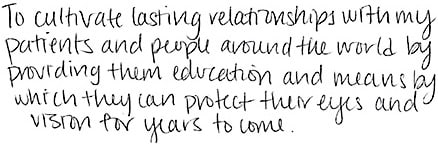 To cultivate lasting relationships with my
patients and people around the world by
providing them education and means by
which they can protect their eyes and
vision for years to come.